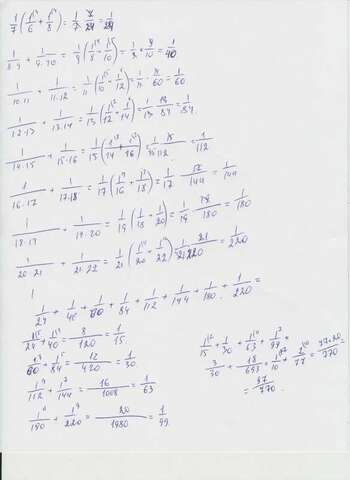 1/7 (1/6 + 1/8) = 1/7 · 7/24 = 1/24
1/8·9 + 1/9·10 = 1/9 (1/8 + 1/10) = 1/9 · 9/40 = 1/40
1/10·11 + 1/11·12 = 1/11 (1/10 + 1/12) = 1/11 · 11/60 = 1/60
1/12·13 + 1/13·14 = 1/13 (1/12 + 1/14) = 1/13 · 13/84 = 1/84
1/14·15 + 1/15·16 = 1/15 (1/14 + 1/16) = 1/15 · 15/112 = 1/112
1/16·17 + 1/17·18 = 1/17 (1/16 + 1/18) = 1/17 · 17/144 = 1/144
1/18·19 + 1/19·20 = 1/19 (1/18 + 1/20) = 1/19 · 19/180 = 1/180
1/20·21 + 1/21·22 = 1/21 (1/20 + 1/22) = 1/21 · 21/220 = 1/220
1/24 + 1/40 + 1/60 + 1/84 + 1/112 + 1/144 + 1/180 + 1/220 =
1/24 + 1/40 = 8/120 = 1/15
1/60 + 1/84 = 12/420 = 1/30
1/112 + 1/144 = 16/1008 = 1/63
1/180 + 1/220 = 20/1980 = 1/99
1/15 + 1/30 + 1/63 + 1/99 =
3/30 + 18/693 = 1/10 + 2/77 =
= 97/770